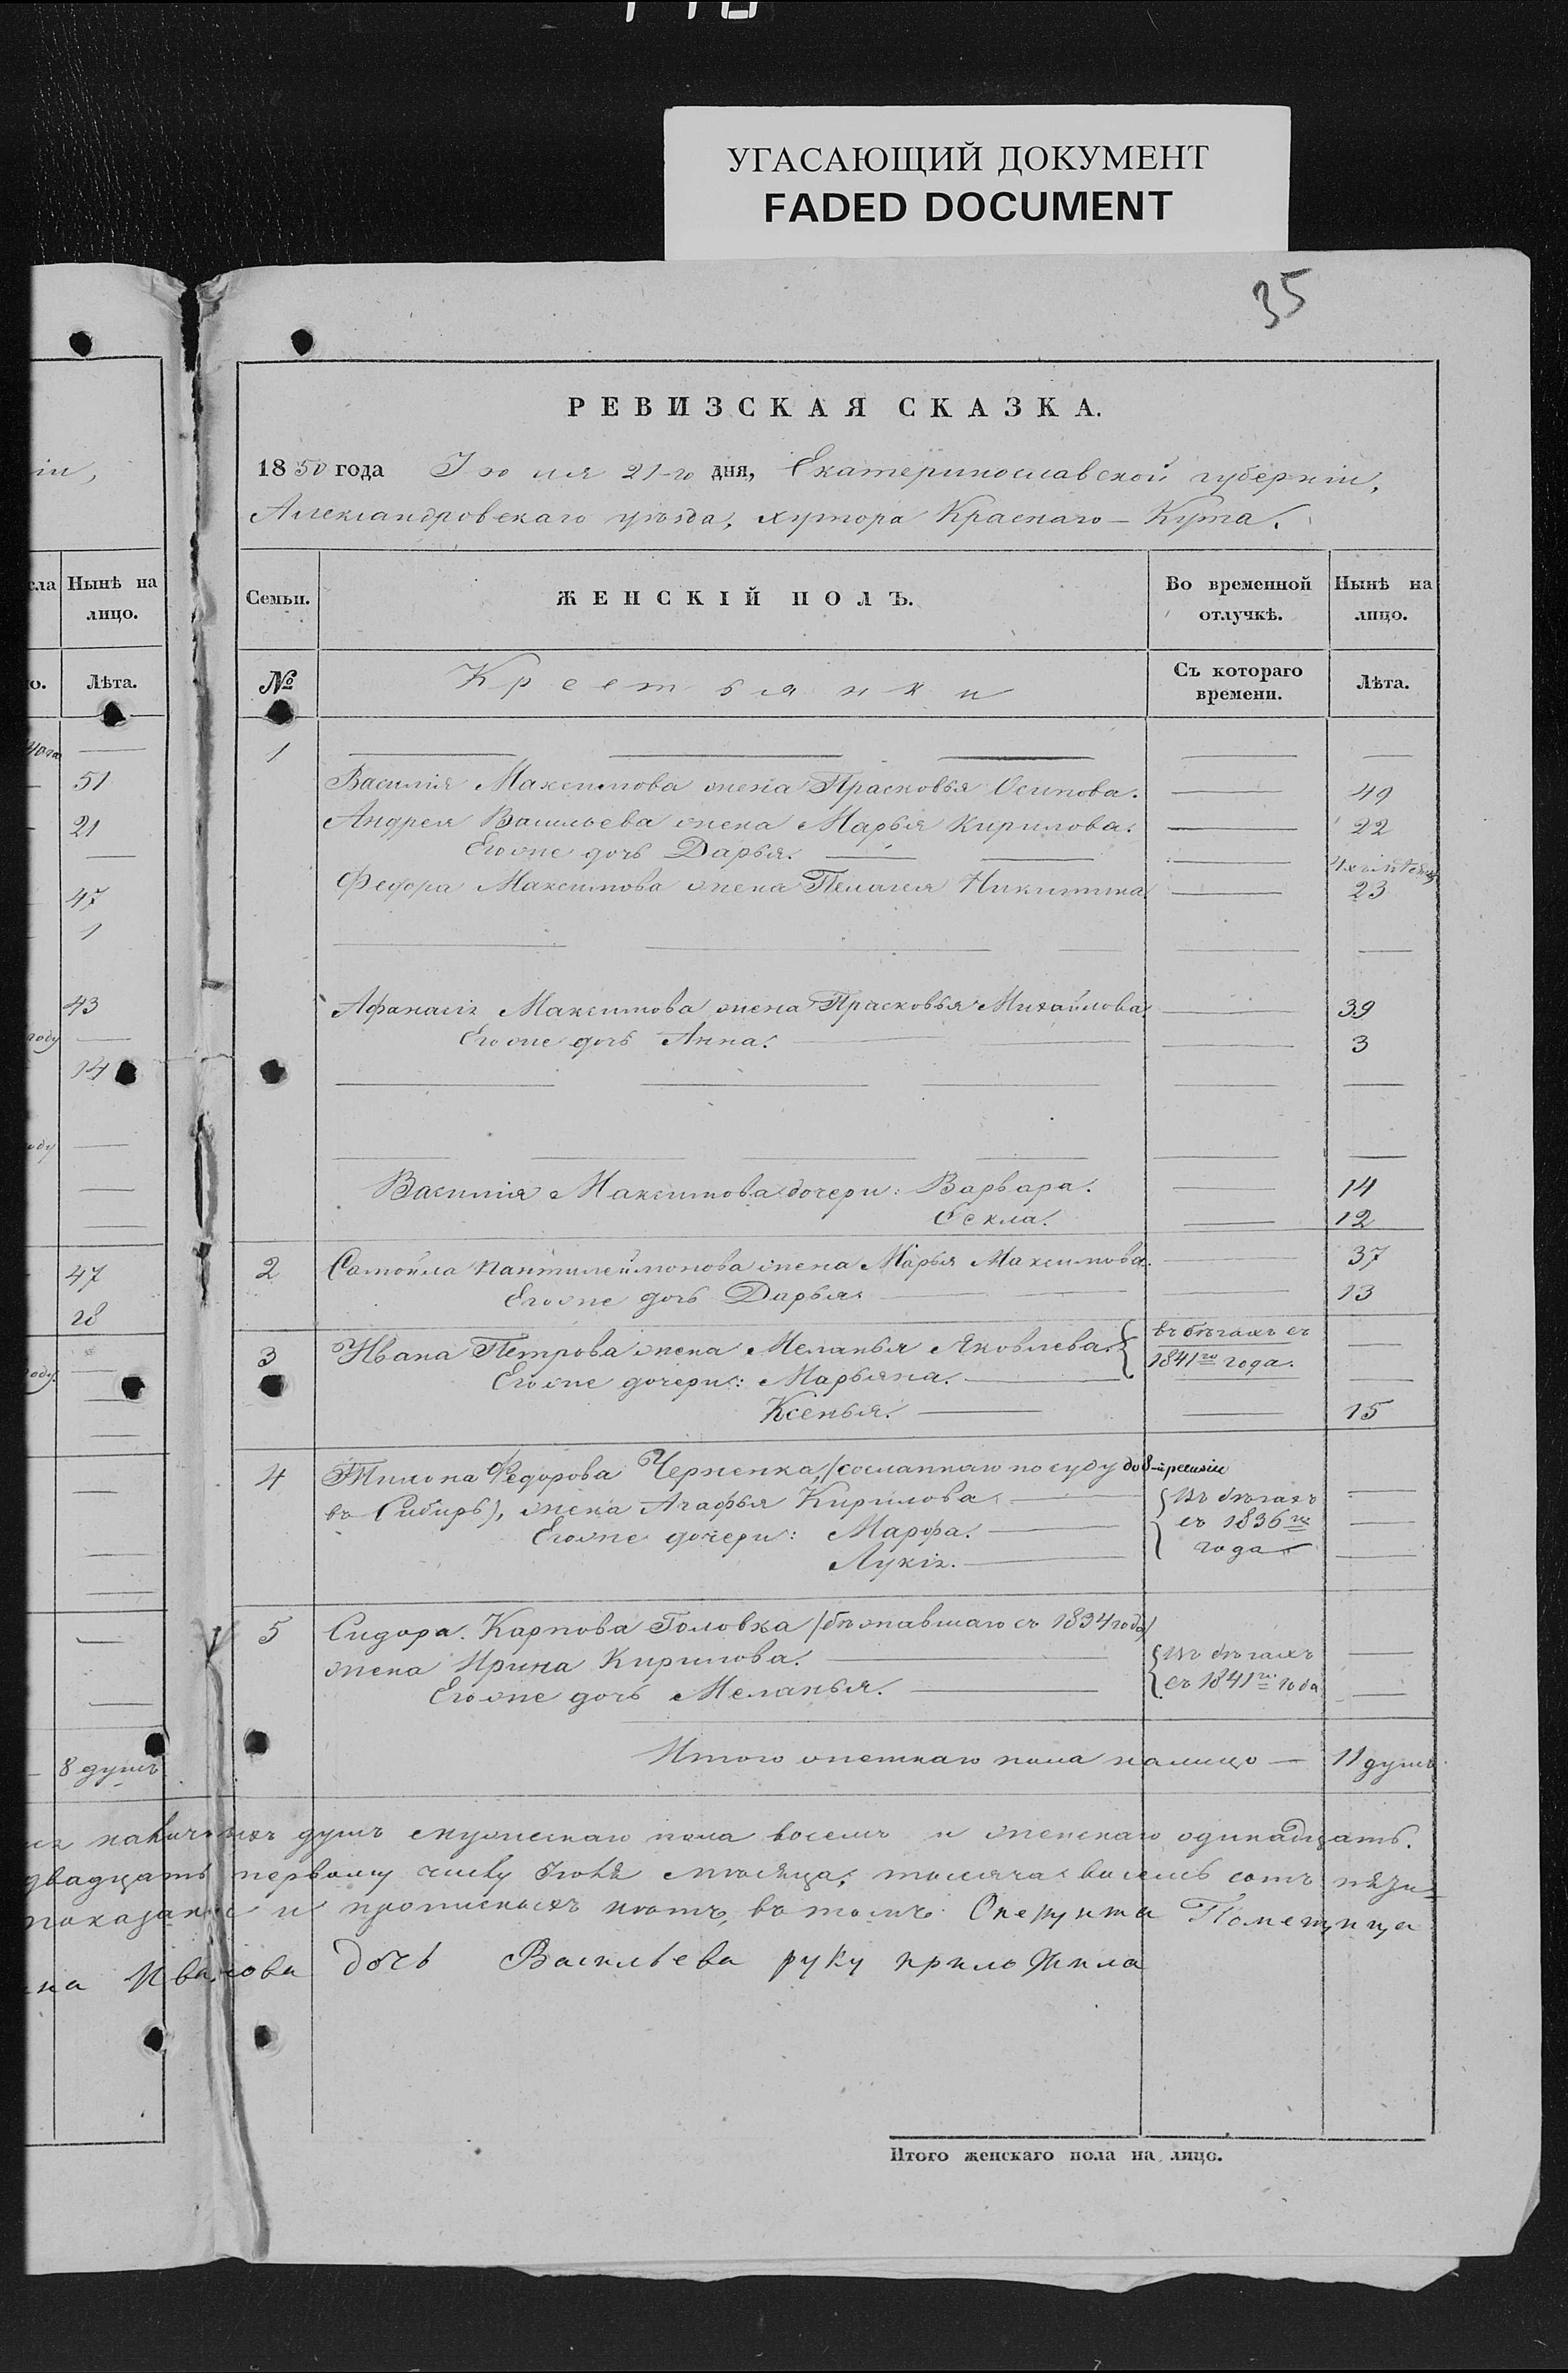 УГАСАЮЩИЙ ДОКУМЕНТ
FADED DOCUMENT
35
РЕВИЗСКАЯ СКАЗКА.
1850 года Іюля 21-го дня, Екатеринославской губерніи,
Александровскаго уѣзда, хутора Краснаго-Кута.
Семьи. ЖЕНСКІЙ ПОЛЪ. Во временной отлучкѣ. Нынѣ на лицо.
№ Крестьянки Съ котораго времени. Лѣта.
1
Василія Максимова жена Прасковья Осипова. 49
Андрея Васильева жена Марья Кирилова. 22
Его же дочь Дарья.
Федора Максимова жена Пелагея Никитина 23
Афанасія Максимова жена Прасковья Михайлова. 39
Его же дочь Анна. 3
Василія Максимова дочери: Варвара. 14
Ѳекла. 12
2 Самойла Пантилеймонова жена Марья Максимова. 37
Его же дочь Дарья. 13
3 Ивана Петрова жена Меланья Яковлева. въ бѣгахъ съ
1841го года.
Его же дочери: Марьяна.
Ксенья. 15
4 Федорова Черненка, (сосланнаго по суду до 8-й ревизіи
въ Сибирь), жена Агафья Кирилова. Въ бѣгахъ
Его же дочери: Марфа. съ 1836го
Лукія. года
5 Сидора Карпова Головка (бѣжавшаго съ 1834 года)
жена Ирина Кирилова. Въ бѣгахъ
Его же дочь Меланья. съ 1841го года
Итого женскаго пола налицо 11 душъ
Нынѣ на
лицо.
Лѣта.
51
21
47
1
43
14
47
28
8 душъ
душъ мужескаго пола восемь и женскаго одинадцать.
двадцать первому числу Іюля мѣсяца, тысяча восемь сотъ
и прописныхъ нѣтъ, въ томъ Помещица
Иванова дочь Васильева руку приложила
Итого женскаго пола на лицо.